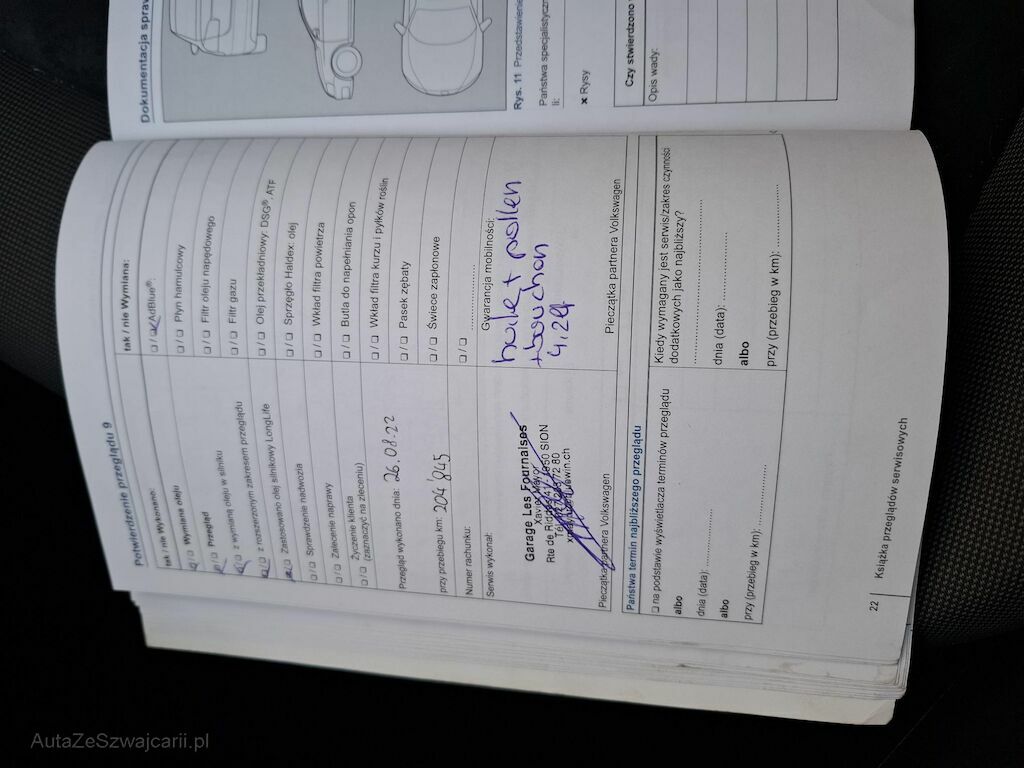 Dokumentacja
Rys. 11 Przedstawienie
Państwa specjalistyczn
li:
× Rysy
Czy stwierdzono
Opis wady:
Potwierdzenie przeglądu 9
tak / nie Wykonano:
❑/❑ Wymiana oleju
❑/❑ Przegląd
❑/❑ z wymianą oleju w silniku
❑/❑ z rozszerzonym zakresem przeglądu
❑/❑ Zastosowano olej silnikowy LongLife
❑/❑ Sprawdzenie nadwozia
❑/❑ Zalecenie naprawy
❑/❑ Życzenie klienta
(zaznaczyć na zleceniu)
Przegląd wykonano dnia: 26.08.22
przy przebiegu km: 204'845
Numer rachunku:
Serwis wykonał:
Garage Les Fournaises
Xavier Mayor
Rte de SION
Pieczątka partnera Volkswagen
tak / nie Wymiana:
❑/❑ AdBlue®:
❑/❑ Płyn hamulcowy
❑/❑ Filtr oleju napędowego
❑/❑ Filtr gazu
❑/❑ Olej przekładniowy: DSG®, ATF
❑/❑ Sprzęgło Haldex: olej
❑/❑ Wkład filtra powietrza
❑/❑ Butla do napełniania opon
❑/❑ Wkład filtra kurzu i pyłków roślin
❑/❑ Pasek zębaty
❑/❑ Świece zapłonowe
❑/❑
Gwarancja mobilności:
huile + pollen
+ bouchon
4,29l
Pieczątka partnera Volkswagen
Państwa termin najbliższego przeglądu
❑ na podstawie wyświetlacza terminów przeglądu
albo
dnia (data):
albo
przy (przebieg w km):
Kiedy wymagany jest serwis/zakres czynności
dodatkowych jako najbliższy?
dnia (data):
albo
przy (przebieg w km):
22 Książka przeglądów serwisowych
AutaZeSzwajcarii.pl